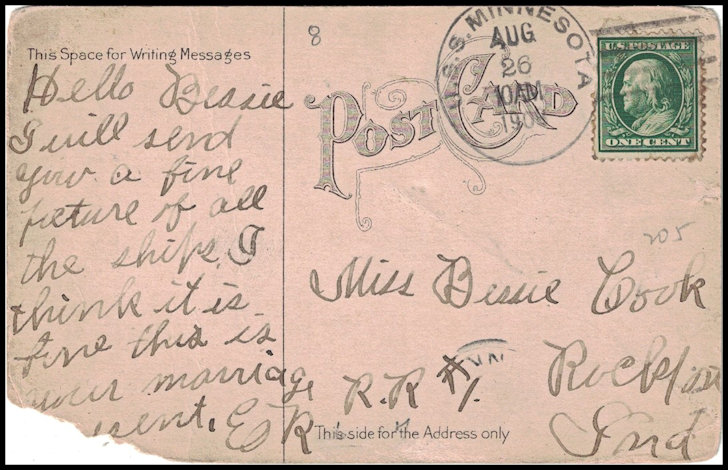 This Space for Writing Messages
8
Hello Bessie
I will send
you a fine
picture of all
the ships. I
think it is
fine this is
your marriage
sent. E R
POST CARD
U.S.S. MINNESOTA
AUG
26
10 AM
190
U.S. POSTAGE
ONE CENT
205
Miss Bessie Cook
R.R #1.
Ind
This side for the Address only